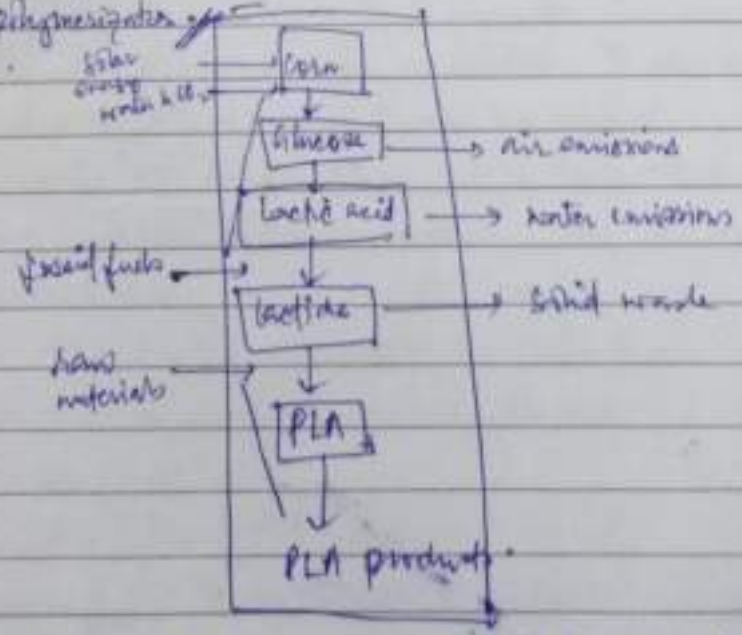 Polymerization.
Solar
energy
water & CO2
Corn
Glucose
air emissions
Lactic acid
water emissions
fossil fuels
Lactide
Solid waste
raw
materials
PLA
PLA products.